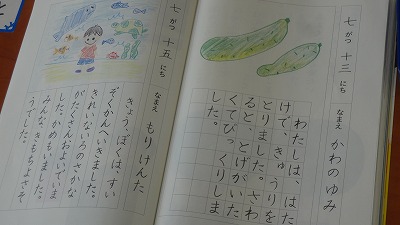 七がつ十三にち
なまえ かわのゆみ
わたしは、はた
けで、きゅうりを
とりました。さわ
ると、とげがいた
くてびっくりしま
した。
七がつ十五にち
なまえ もりけんた
きょう、ぼくは、すい
ぞくかんへいきました。
きれいないろのさかな
がたくさんおよいでいま
した。かめもいました。
みんな、きもちよさそ
うでした。